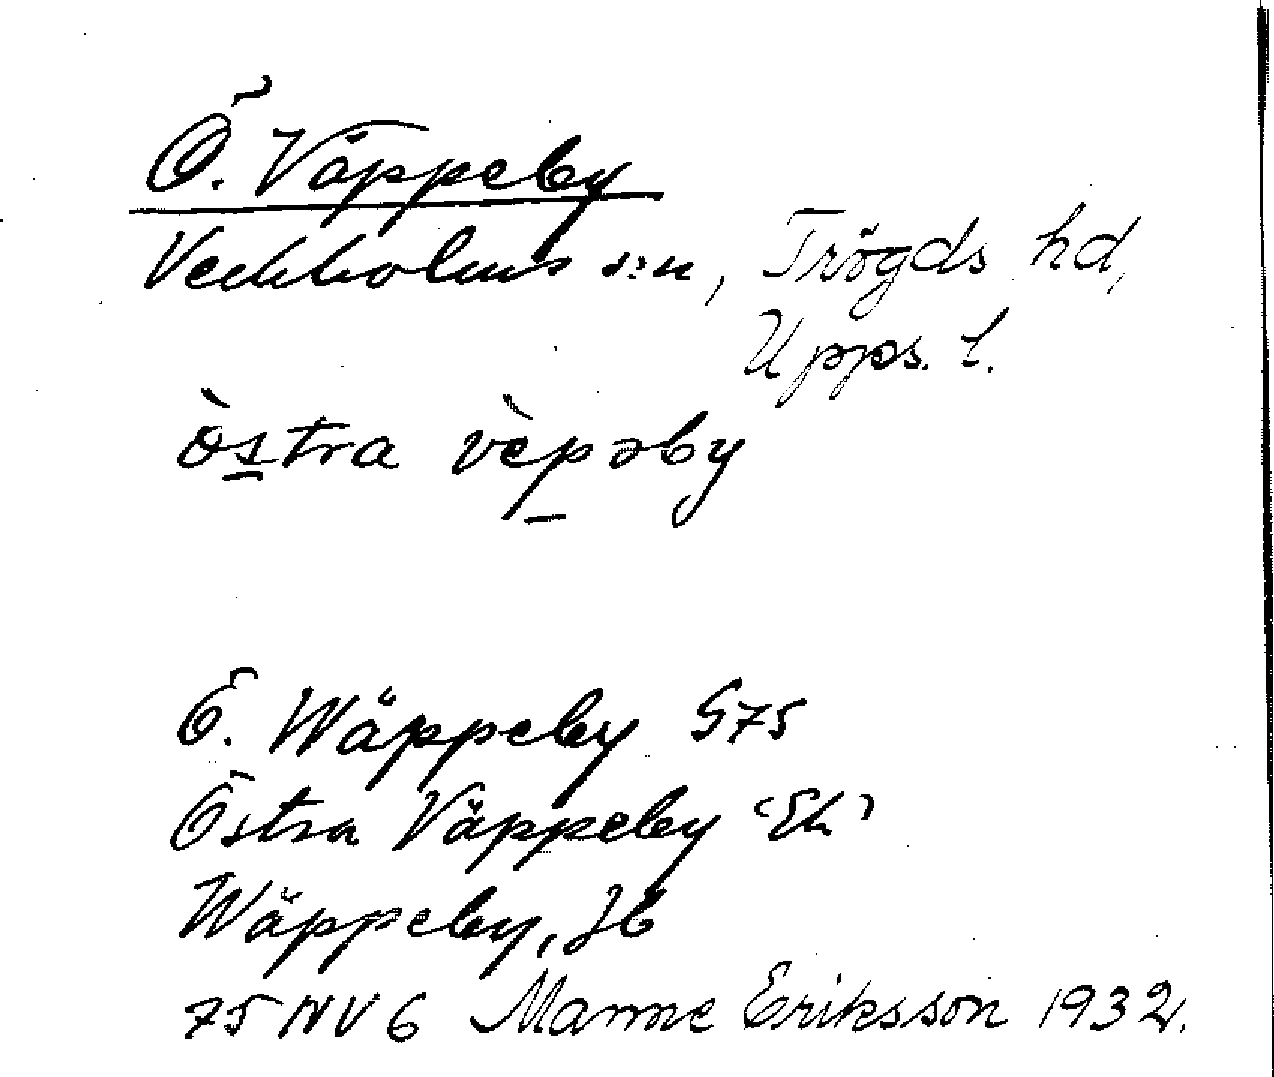 Ö. Väppeby
Veckholms s:n, Trögds hd,
Upps. l.
òstra vèpəby
Ö. Wäppeby G75
Östra Väppeby 'Ek'
Wäppeby, Jb
75 NV 6 Manne Eriksson 1932.